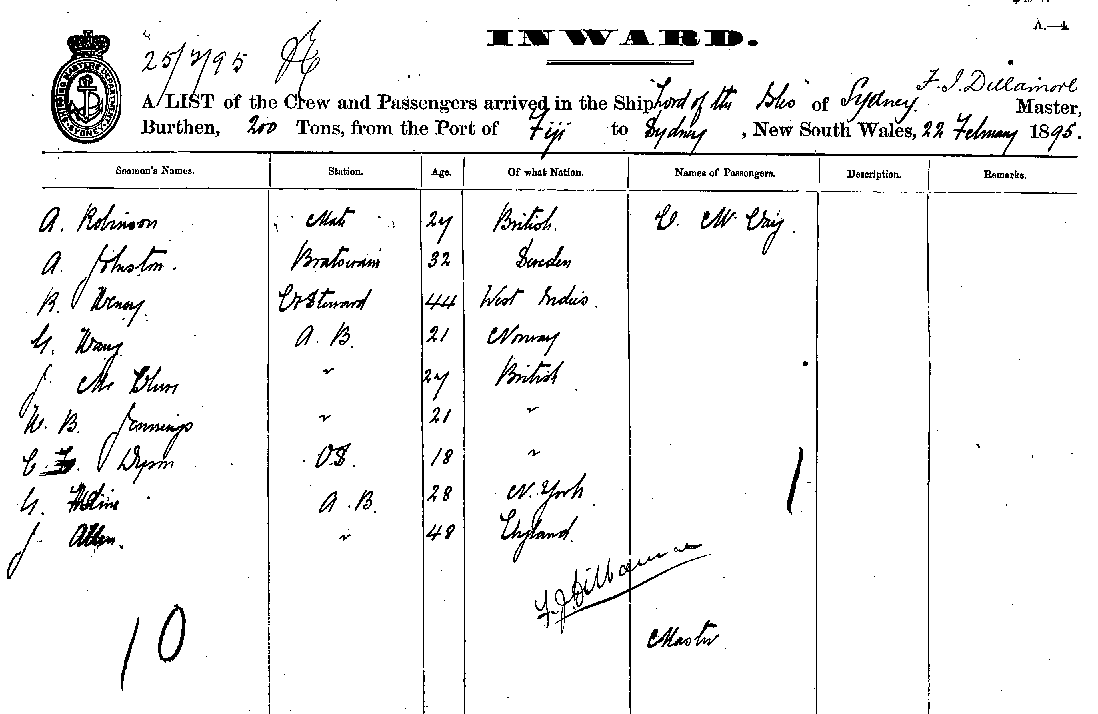 A.—4
INWARD.
25/2/95
F. J. Dillamore
A LIST of the Crew and Passengers arrived in the Ship Lord of the Isles of Sydney Master,
Burthen, 200 Tons, from the Port of Fiji to Sydney, New South Wales, 22 February 1895.
Seamen's Names. Station. Age. Of what Nation. Names of Passengers. Description. Remarks.
A. Robinson Mate 27 British C. Mc
A. Johnston. Boatswain 32 Sweden
R. Henry C & Steward 44 West Indies.
G. A. B. 21 Norway
J. Mc " 27 British
W. B. Jennings " 21 "
C. Dyson OS. 18 "
G. A. B. 28 N. York
J. Allen. " 48 England.
1
F. J. Dillamore
10
Master